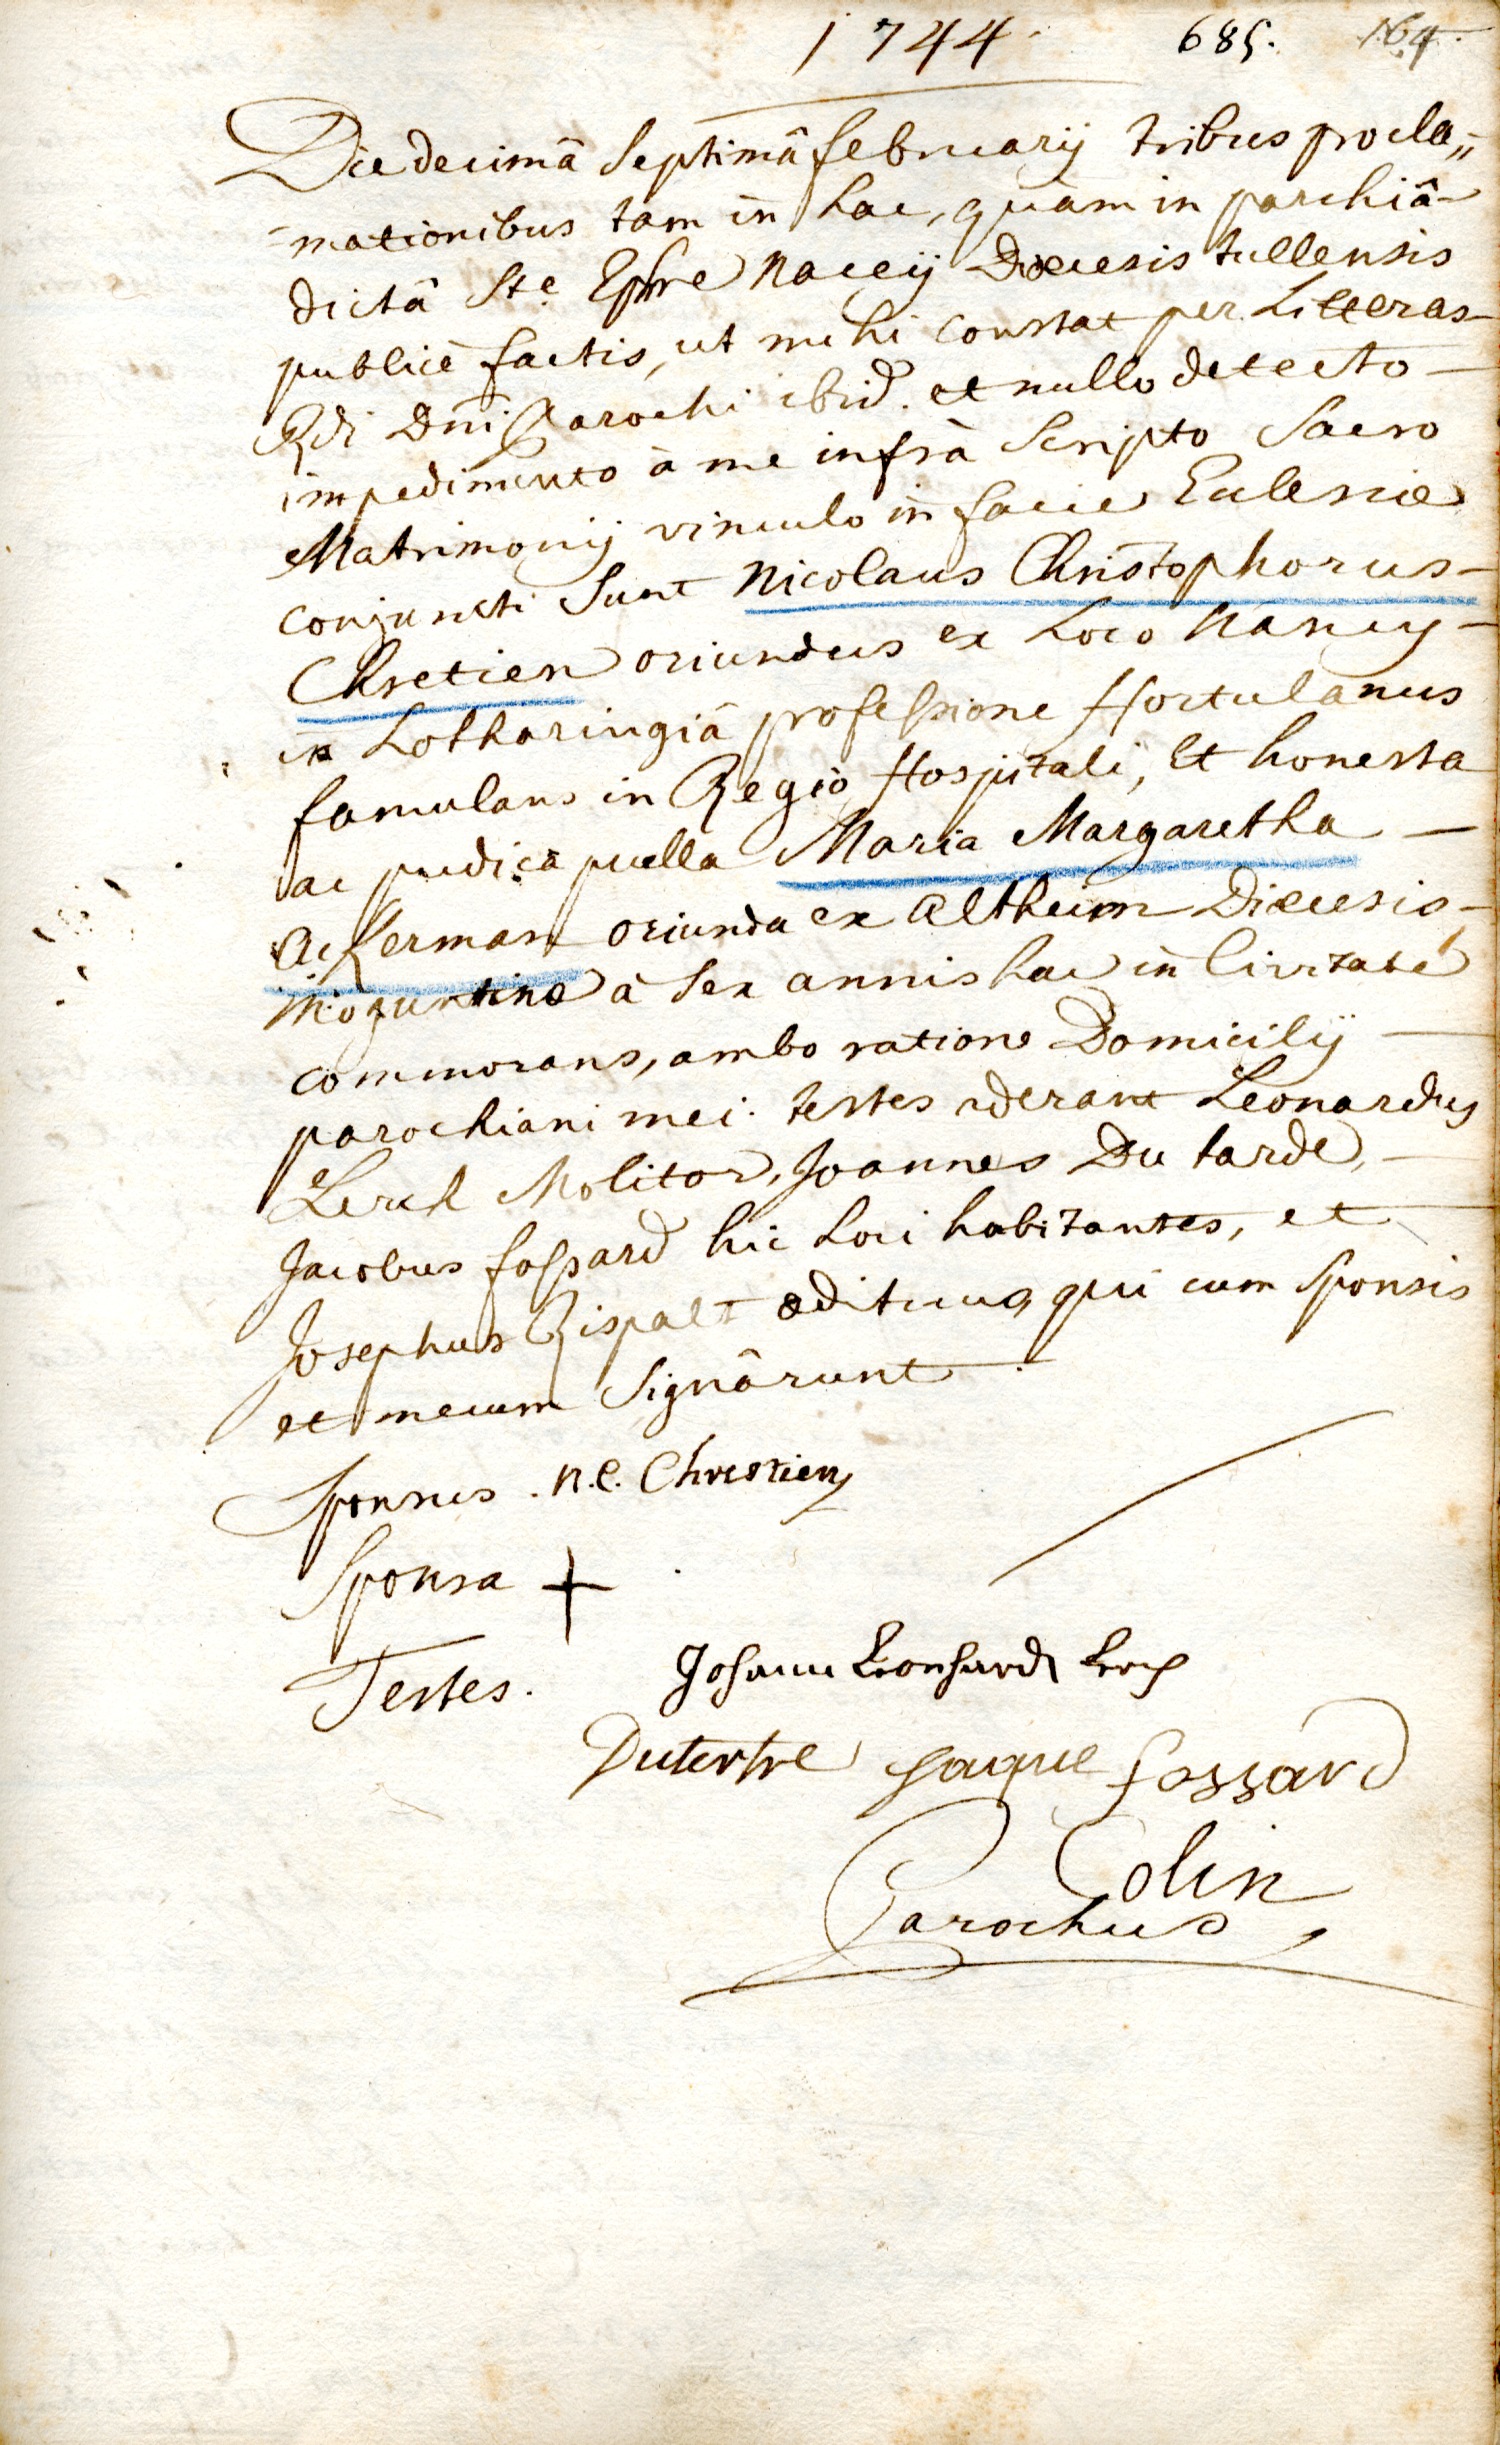 1744. 685. 164.
Die decimâ Septimâ februarij tribus procla„
mationibus tam in hac, quàm in parchiâ
dictâ Ste Epvre Naceij Diœcesis tullensis
publicè factis, ut mihi constat per Litteras
Rdi Dni Parochi ibid. et nullo detecto
impedimento à me infrà Scripto Sacro
Matrimonij vinculo in facie Eclesiæ
conjuncti Sunt Nicolaus Christophorus
Chretien oriundus ex Loco Nancy
in Lotharingiâ professione Hortulanus
famulans in Regio Hospitali, Et honesta
ac pudica puella Maria Margaretha
Ackerman oriunda ex Altheim Diœcesis
Moguntinæ à Sex annis hac in Civitate
commorans, ambo ratione Domicilij
parochiani mei. testes aderant Leonardus
Lerch Molitor, Joannes Du tarde,
Jacobus fossard hic Loci habitantes, et
Josephus Rispalt ædituus qui cum Sponsis
et mecum Signârunt.
Sponsus . N. C. Chrestien
Sponsa +
Testes. Johann Leonhardt Lerch
Dutertre Jaque fossard
Colin
Parochus